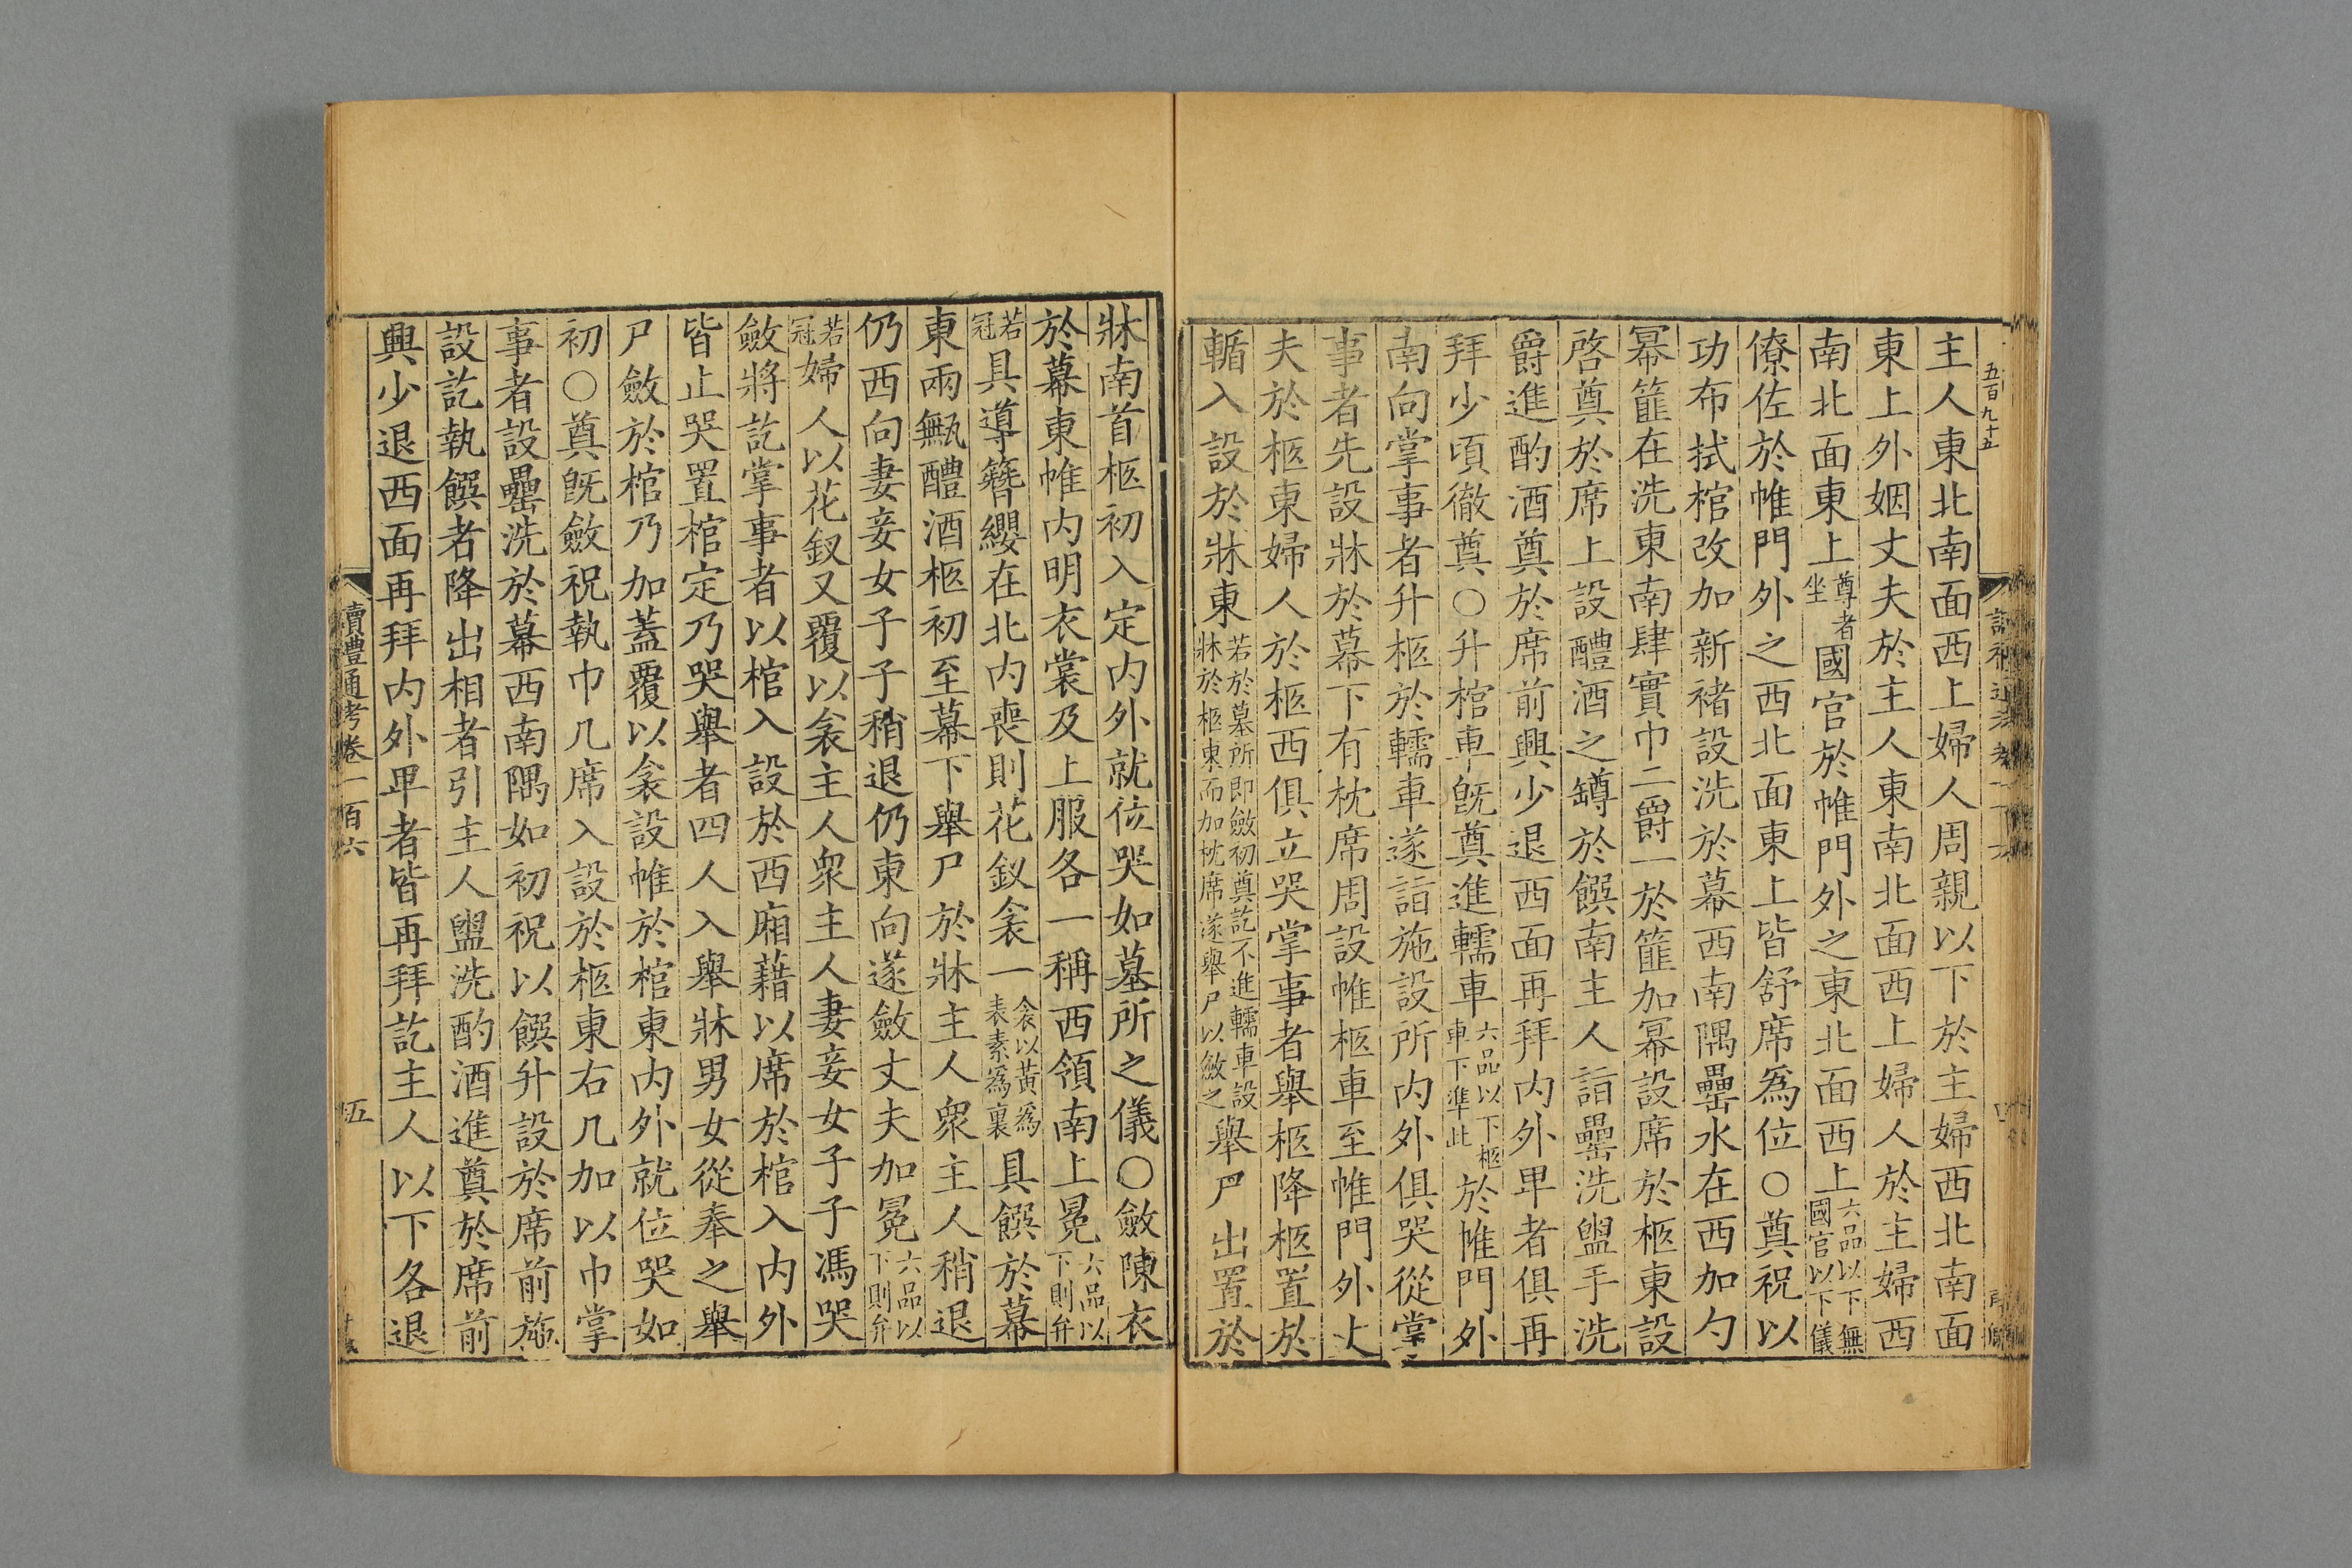 五百九十五
主人東北南面西上婦人周親以下於主婦西北南面
東上外姻丈夫於主人東南北面西上婦人於主婦西
南北面東上尊者坐國官於帷門外之東北面西上六品以下無國官以下儀
僚佐於帷門外之西北面東上皆舒席為位○奠祝以
功布拭棺改加新褚設洗於幕西南隅罍水在西加勺
冪篚在洗東南肆實巾二爵一於篚加冪設席於柩東設
啓奠於席上設醴酒之罇於饌南主人詣罍洗盥手洗
爵進酌酒奠於席前興少退西面再拜内外卑者俱再
拜少頃徹奠○升棺車旣奠進轜車六品以下柩車下準此於帷門外
南向掌事者升柩於轜車遂詣施設所内外俱哭從掌
事者先設牀於幕下有枕席周設帷柩車至帷門外丈
夫於柩東婦人於柩西俱立哭掌事者舉柩降柩置於
輴入設於牀東若於墓所即斂初奠訖不進轜車設牀於柩東而加枕席遂舉尸以斂之舉尸出置於
牀南首柩初入定内外就位哭如墓所之儀○斂陳衣
於幕東帷内明衣裳及上服各一稱西領南上冕六品以下則弁
若冠具導簪纓在北内喪則花釵衾一衾以黃為表素為裏具饌於幕
東兩甒醴酒柩初至幕下舉尸於牀主人衆主人稍退
仍西向妻妾女子子稍退仍東向遂斂丈夫加冕六品以下則弁
若冠婦人以花釵又覆以衾主人衆主人妻妾女子子馮哭
斂將訖掌事者以棺入設於西廂藉以席於棺入内外
皆止哭置棺定乃哭舉者四人入舉牀男女從奉之舉
尸斂於棺乃加蓋覆以衾設帷於棺東内外就位哭如
初○奠旣斂祝執巾几席入設於柩東右几加以巾掌
事者設罍洗於幕西南隅如初祝以饌升設於席前施
設訖執饌者降出相者引主人盥洗酌酒進奠於席前
興少退西面再拜内外卑者皆再拜訖主人以下各退
讀禮通考卷一百六
五